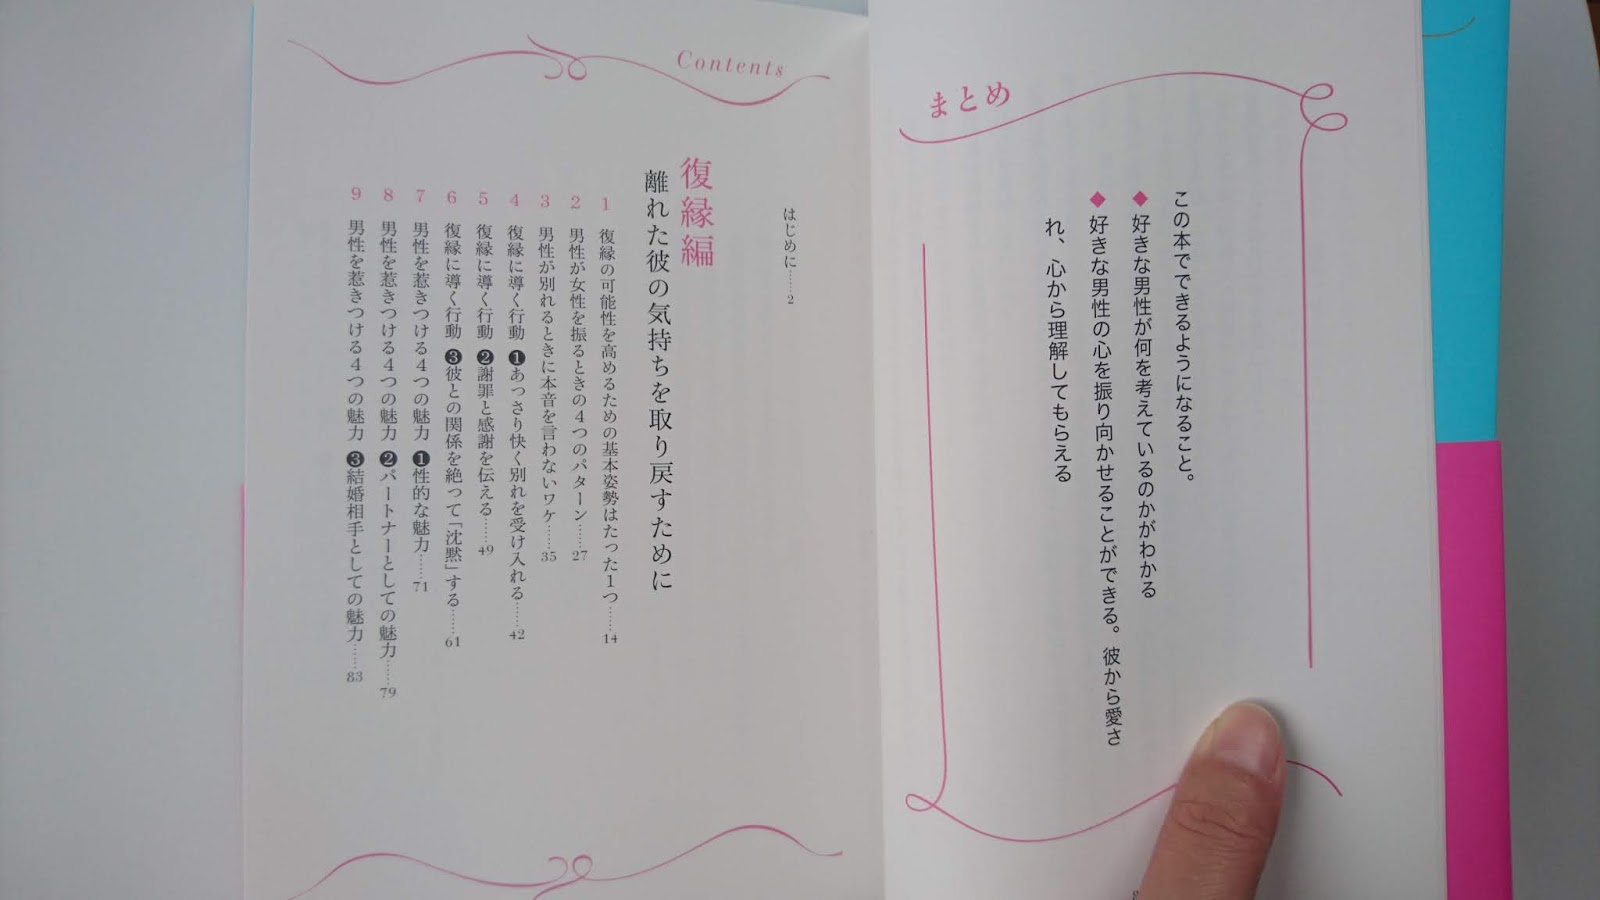 まとめ
この本でできるようになること。
◆ 好きな男性が何を考えているのかがわかる
◆ 好きな男性の心を振り向かせることができる。彼から愛さ
れ、心から理解してもらえる
Contents
はじめに……2
復縁編
離れた彼の気持ちを取り戻すために
1 復縁の可能性を高めるための基本姿勢はたった1つ……14
2 男性が女性を振るときの4つのパターン……27
3 男性が別れるときに本音を言わないワケ……35
4 復縁に導く行動 ❶あっさり快く別れを受け入れる……42
5 復縁に導く行動 ❷謝罪と感謝を伝える……49
6 復縁に導く行動 ❸彼との関係を絶って「沈黙」する……61
7 男性を惹きつける4つの魅力 ❶性的な魅力……71
8 男性を惹きつける4つの魅力 ❷パートナーとしての魅力……79
9 男性を惹きつける4つの魅力 ❸結婚相手としての魅力……83